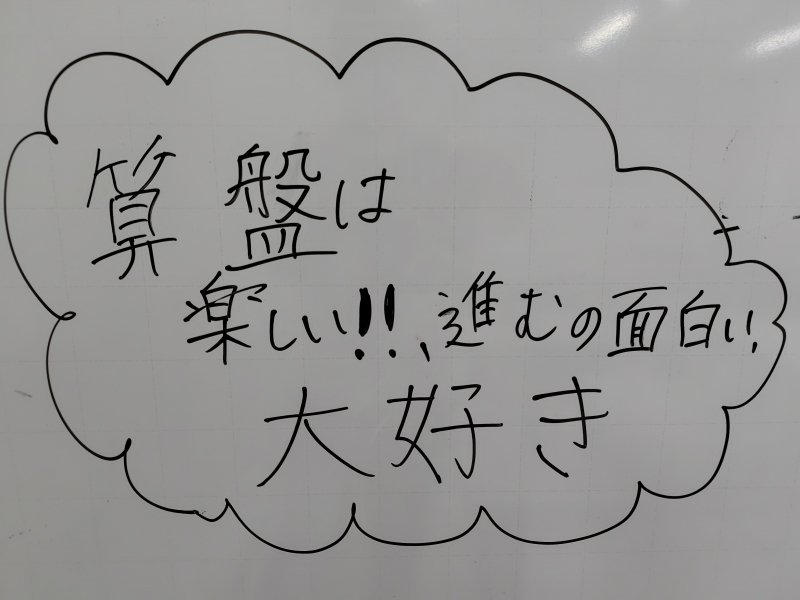 算盤は
楽しい!!、進むの面白い!
大好き